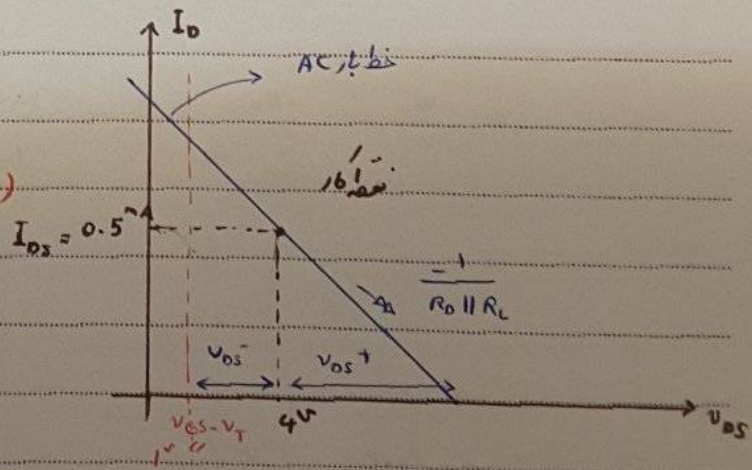 I_D
خط بار AC
نقطه کار
I_DS = 0.5^m
-1
R_D || R_L
v_DS^-
v_DS^+
v_GS - v_T
1^v
4^v
v_DS